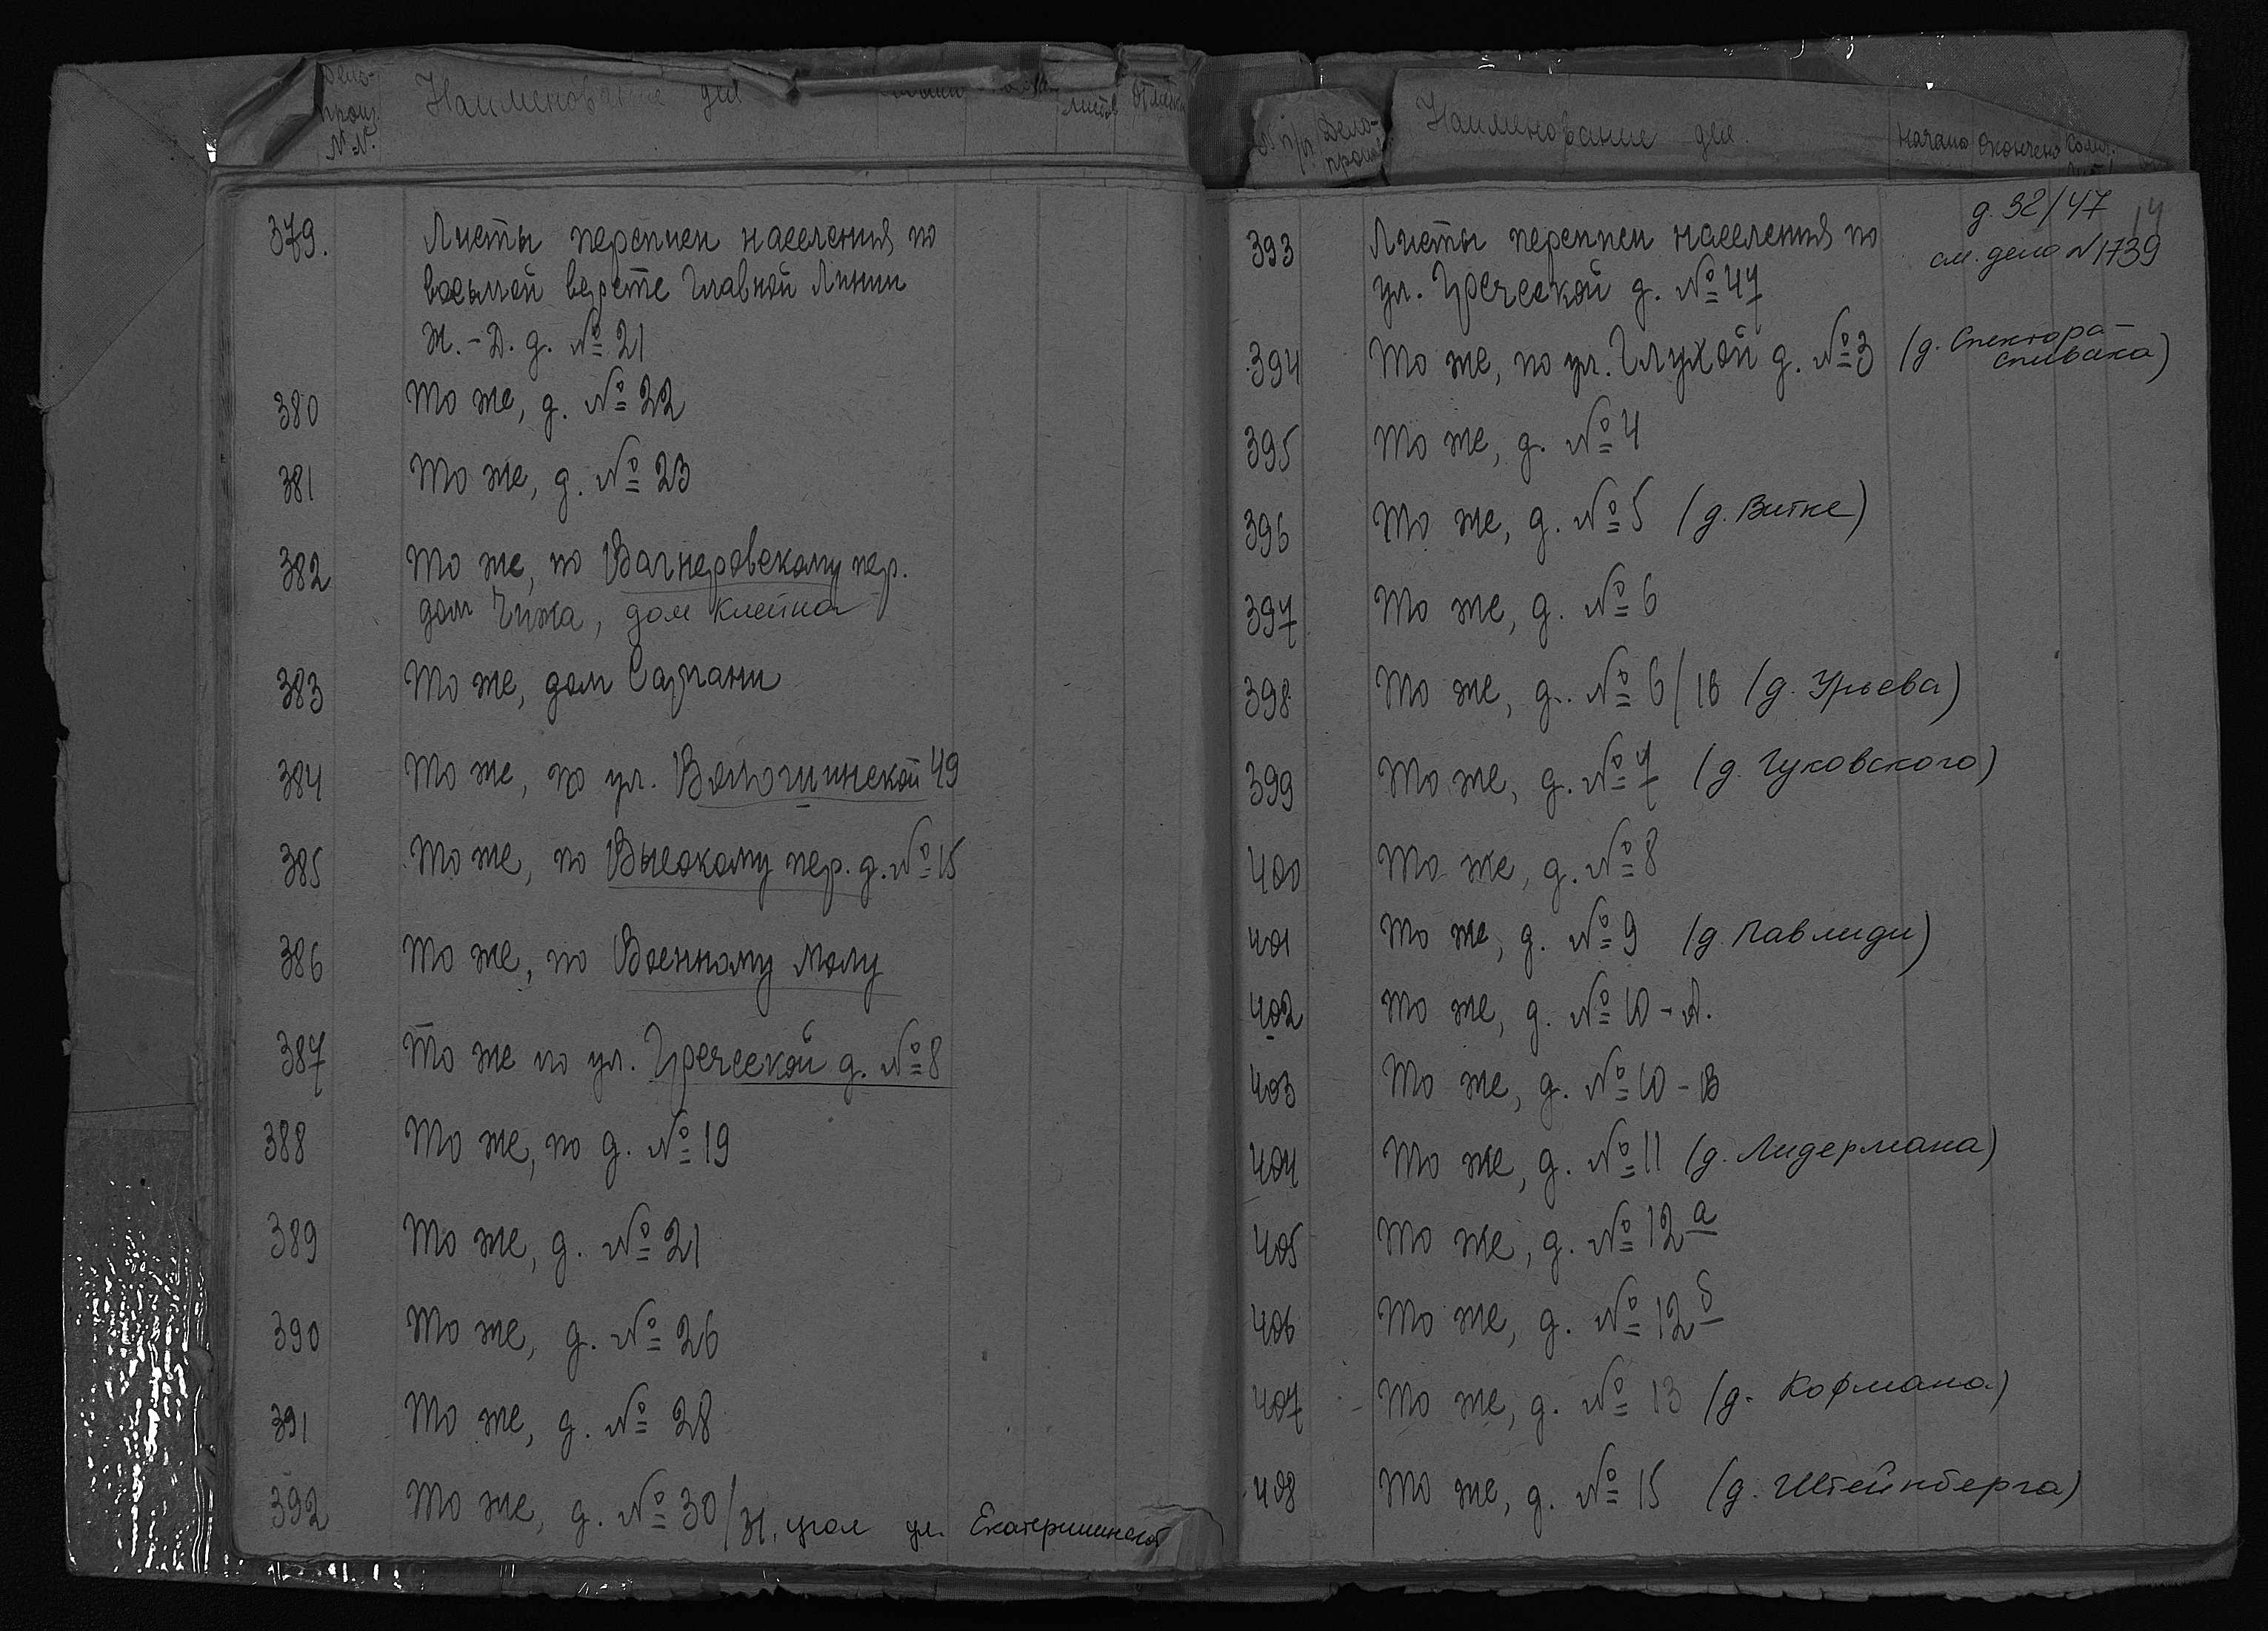 Дело-
произ.
N.N.
Наименование дел
листов
379. Листы переписи населения по
восьмой версте Главной Линии
Ж.-Д. д. № 21
380 То же, д. № 22
381 То же, д. № 23
382 То же, по Вагнеровскому пер.
дом Чижа, дом Клейна
383 То же, дом
384 То же, по ул. Волошинской 49
385 То же, по Высокому пер. д. № 15
386 То же, по Военному молу
387 То же по ул. Греческой д. № 8
388 То же, по д. № 19
389 То же, д. № 21
390 То же, д. № 26
391 То же, д. № 28
392 То же, д. № 30/31, угол ул. Екатерининской
п/п
Дело-
произ
Наименование дел.
Начало Окончено Колич.
14
393 Листы переписи населения по
ул. Греческой д. № 47
д. 32/47
см. дело N 1739
394 То же, по ул. Глухой д. № 3 (д. Спектора-
Спивака)
395 То же, д. № 4
396 То же, д. № 5 (д. Витке)
397 То же, д. № 6
398 То же, д. № 6/1В (д. Урьева)
399 То же, д. № 7 (д. Гуковского)
400 То же, д. № 8
401 То же, д. № 9 (д. Павлиди)
402 То же, д. № 10-А.
403 То же, д. № 10-В
404 То же, д. № 11 (д. Лидермана)
405 То же, д. № 12 а
406 То же, д. № 12 б
407 То же, д. № 13 (д. Кофмана)
408 То же, д. № 15 (д. Штейнберга)